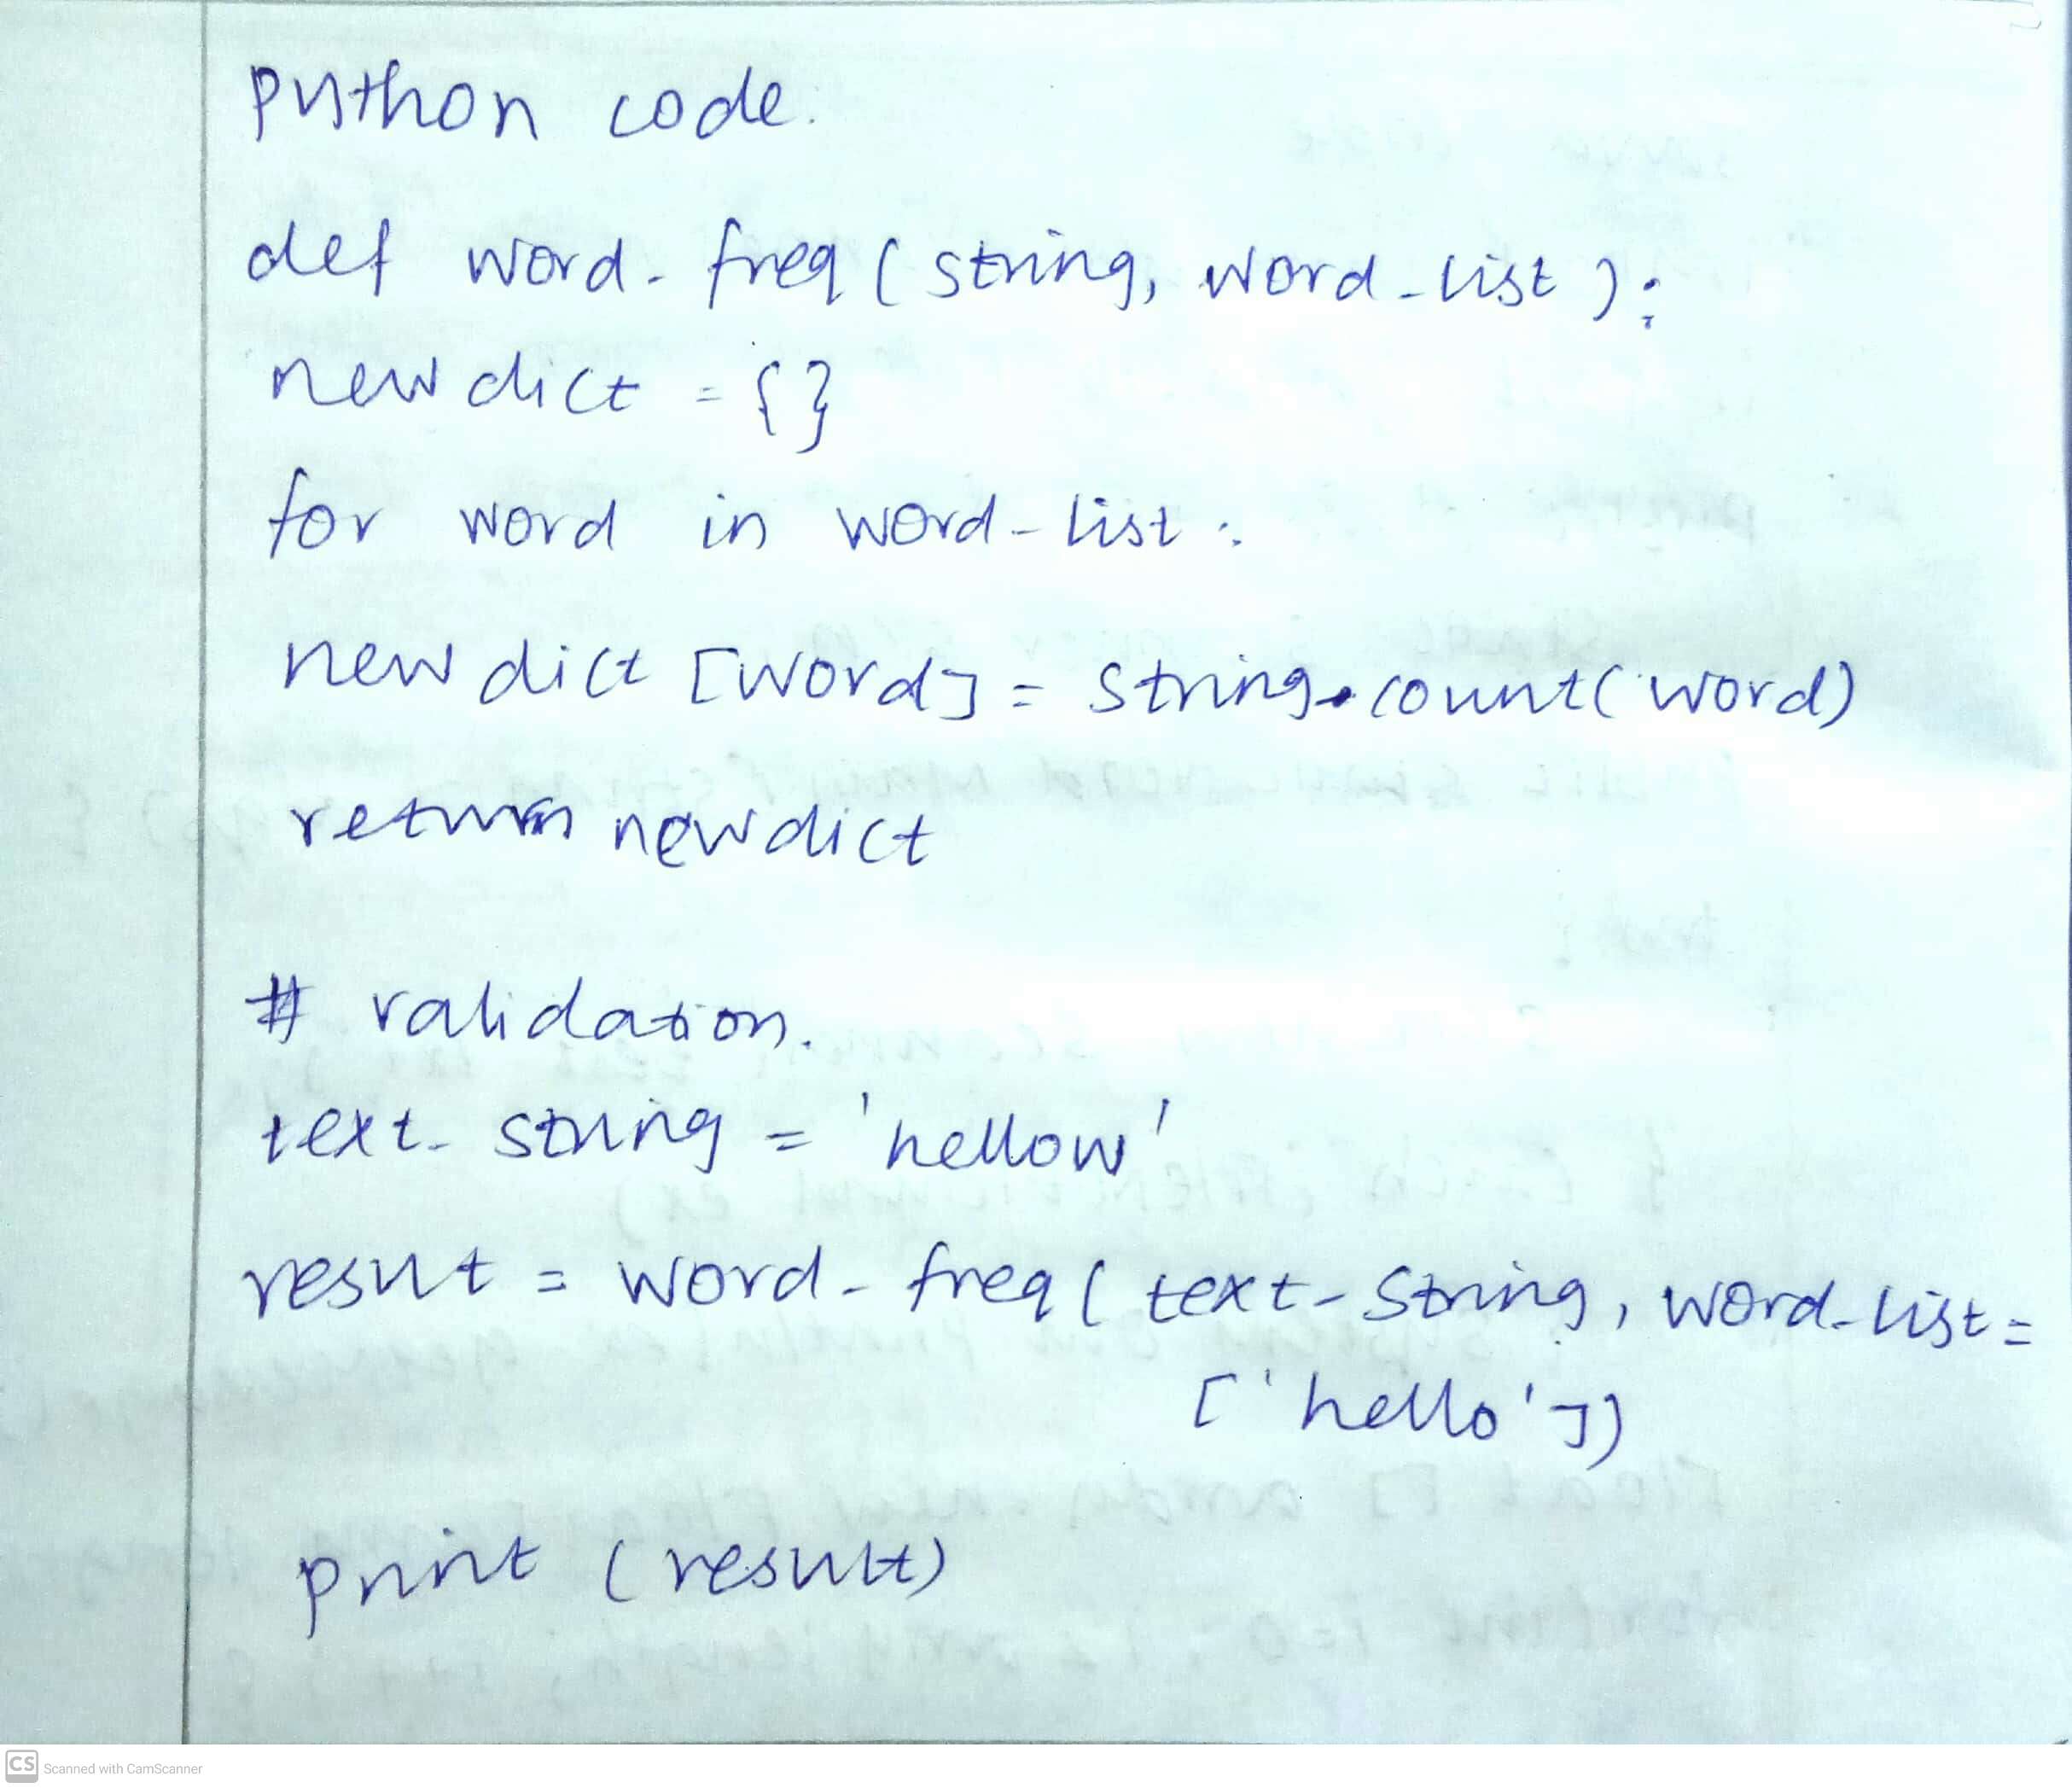 python code.
def word_freq(string, word_list):
newdict = {}
for word in word_list:
newdict[word] = string.count(word)
return newdict
# validation.
text_string = 'hellow'
result = word_freq(text_string, word_list=
['hello'])
print (result)
CS Scanned with CamScanner